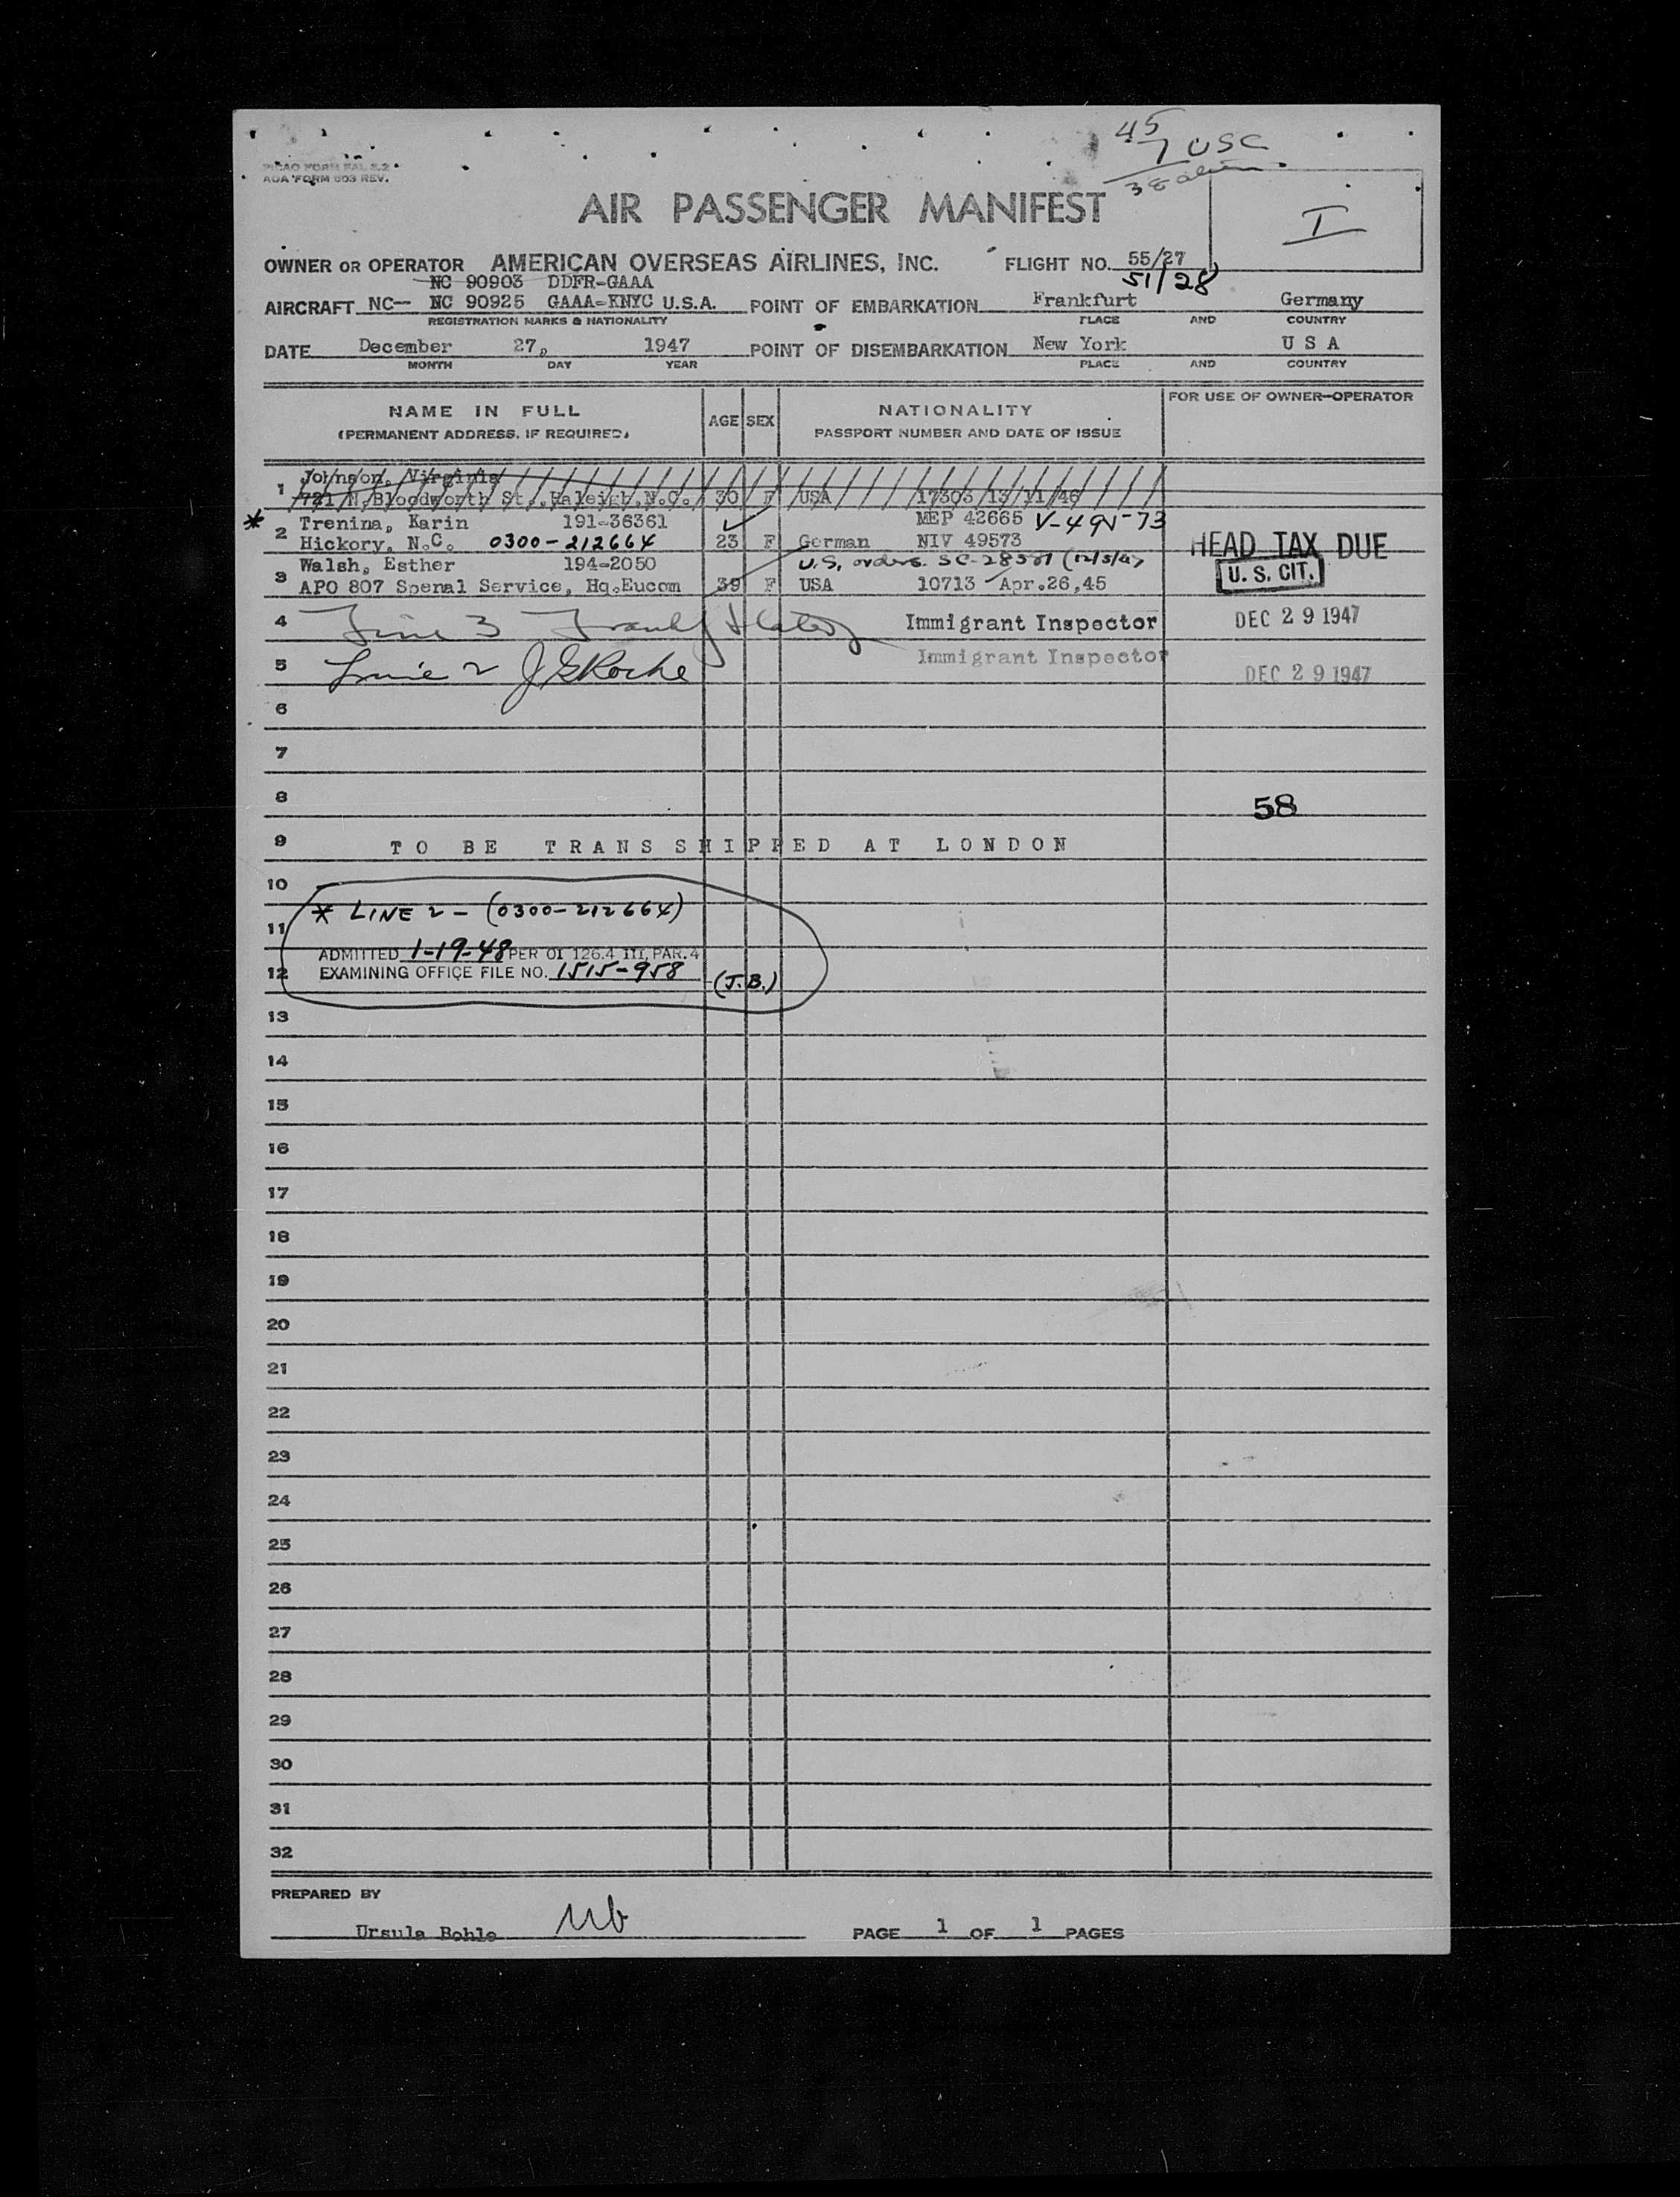 45
7 USC
38 alien
PICAO FORM FAL 2.2
AOA FORM 603 REV.
AIR PASSENGER MANIFEST
I
OWNER OR OPERATOR AMERICAN OVERSEAS AIRLINES, INC. FLIGHT NO. 55/27
NC 90903 DDFR-GAAA 51/28
AIRCRAFT NC— NC 90925 GAAA-KNYC U.S.A. POINT OF EMBARKATION Frankfurt Germany
REGISTRATION MARKS & NATIONALITY PLACE AND COUNTRY
DATE December 27, 1947 POINT OF DISEMBARKATION New York U S A
MONTH DAY YEAR PLACE AND COUNTRY
NAME IN FULL AGE SEX NATIONALITY FOR USE OF OWNER-OPERATOR
(PERMANENT ADDRESS, IF REQUIRED) PASSPORT NUMBER AND DATE OF ISSUE
1 Johnson, Virginia
721 N.Bloodworth St., Raleigh,N.C. 30 F USA 17303 13/11/46
* 2 Trenina, Karin 191-36361 MEP 42665 V-
Hickory, N.C. 0300-212664 23 F German NIV 49573 HEAD TAX DUE
3 Walsh, Esther 194-2050 U.S. orders. SC-28581 U. S. CIT.
APO 807 Spenal Service, Hq.Eucom 39 F USA 10713 Apr.26,45
4 Line 3 Immigrant Inspector DEC 29 1947
5 Line 2 J E Roche Immigrant Inspector DEC 29 1947
6
7
8 58
9 TO BE TRANSSHIPPED AT LONDON
10
11 * LINE 2 - (0300-212664)
ADMITTED 1-19-48 PER OI 126.4 III, PAR. 4
12 EXAMINING OFFICE FILE NO. 1515-958 (J.B.)
13
14
15
16
17
18
19
20
21
22
23
24
25
26
27
28
29
30
31
32
PREPARED BY
Ursula Bohle UB PAGE 1 OF 1 PAGES